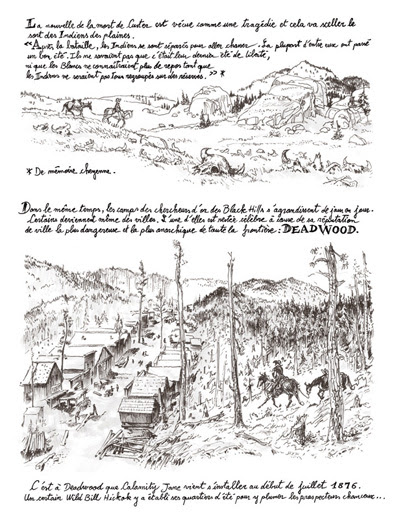 La nouvelle de la mort de Custer est vécue comme une tragédie et cela va sceller le
sort des Indiens des plaines.
"Après la bataille, les Indiens se sont séparés pour aller chasser... La plupart d'entre eux ont passé
un bon été. Ils ne savaient pas que c'était leur dernier été de liberté,
ni que les Blancs ne connaîtraient plus de repos tant que
les Indiens ne seraient pas tous regroupés sur des réserves." *
* De mémoire cheyenne.
Dans le même temps, les camps des chercheurs d'or des Black Hills s'agrandissent de jour en jour.
Certains deviennent même des villes. L'une d'elles est restée célèbre à cause de sa réputation
de ville la plus dangereuse et la plus anarchique de toute la frontière : DEADWOOD.
C'est à Deadwood que Calamity Jane vient s'installer au début de juillet 1876.
Un certain Wild Bill Hickok y a établi ses quartiers d'été pour y plumer les prospecteurs chanceux...